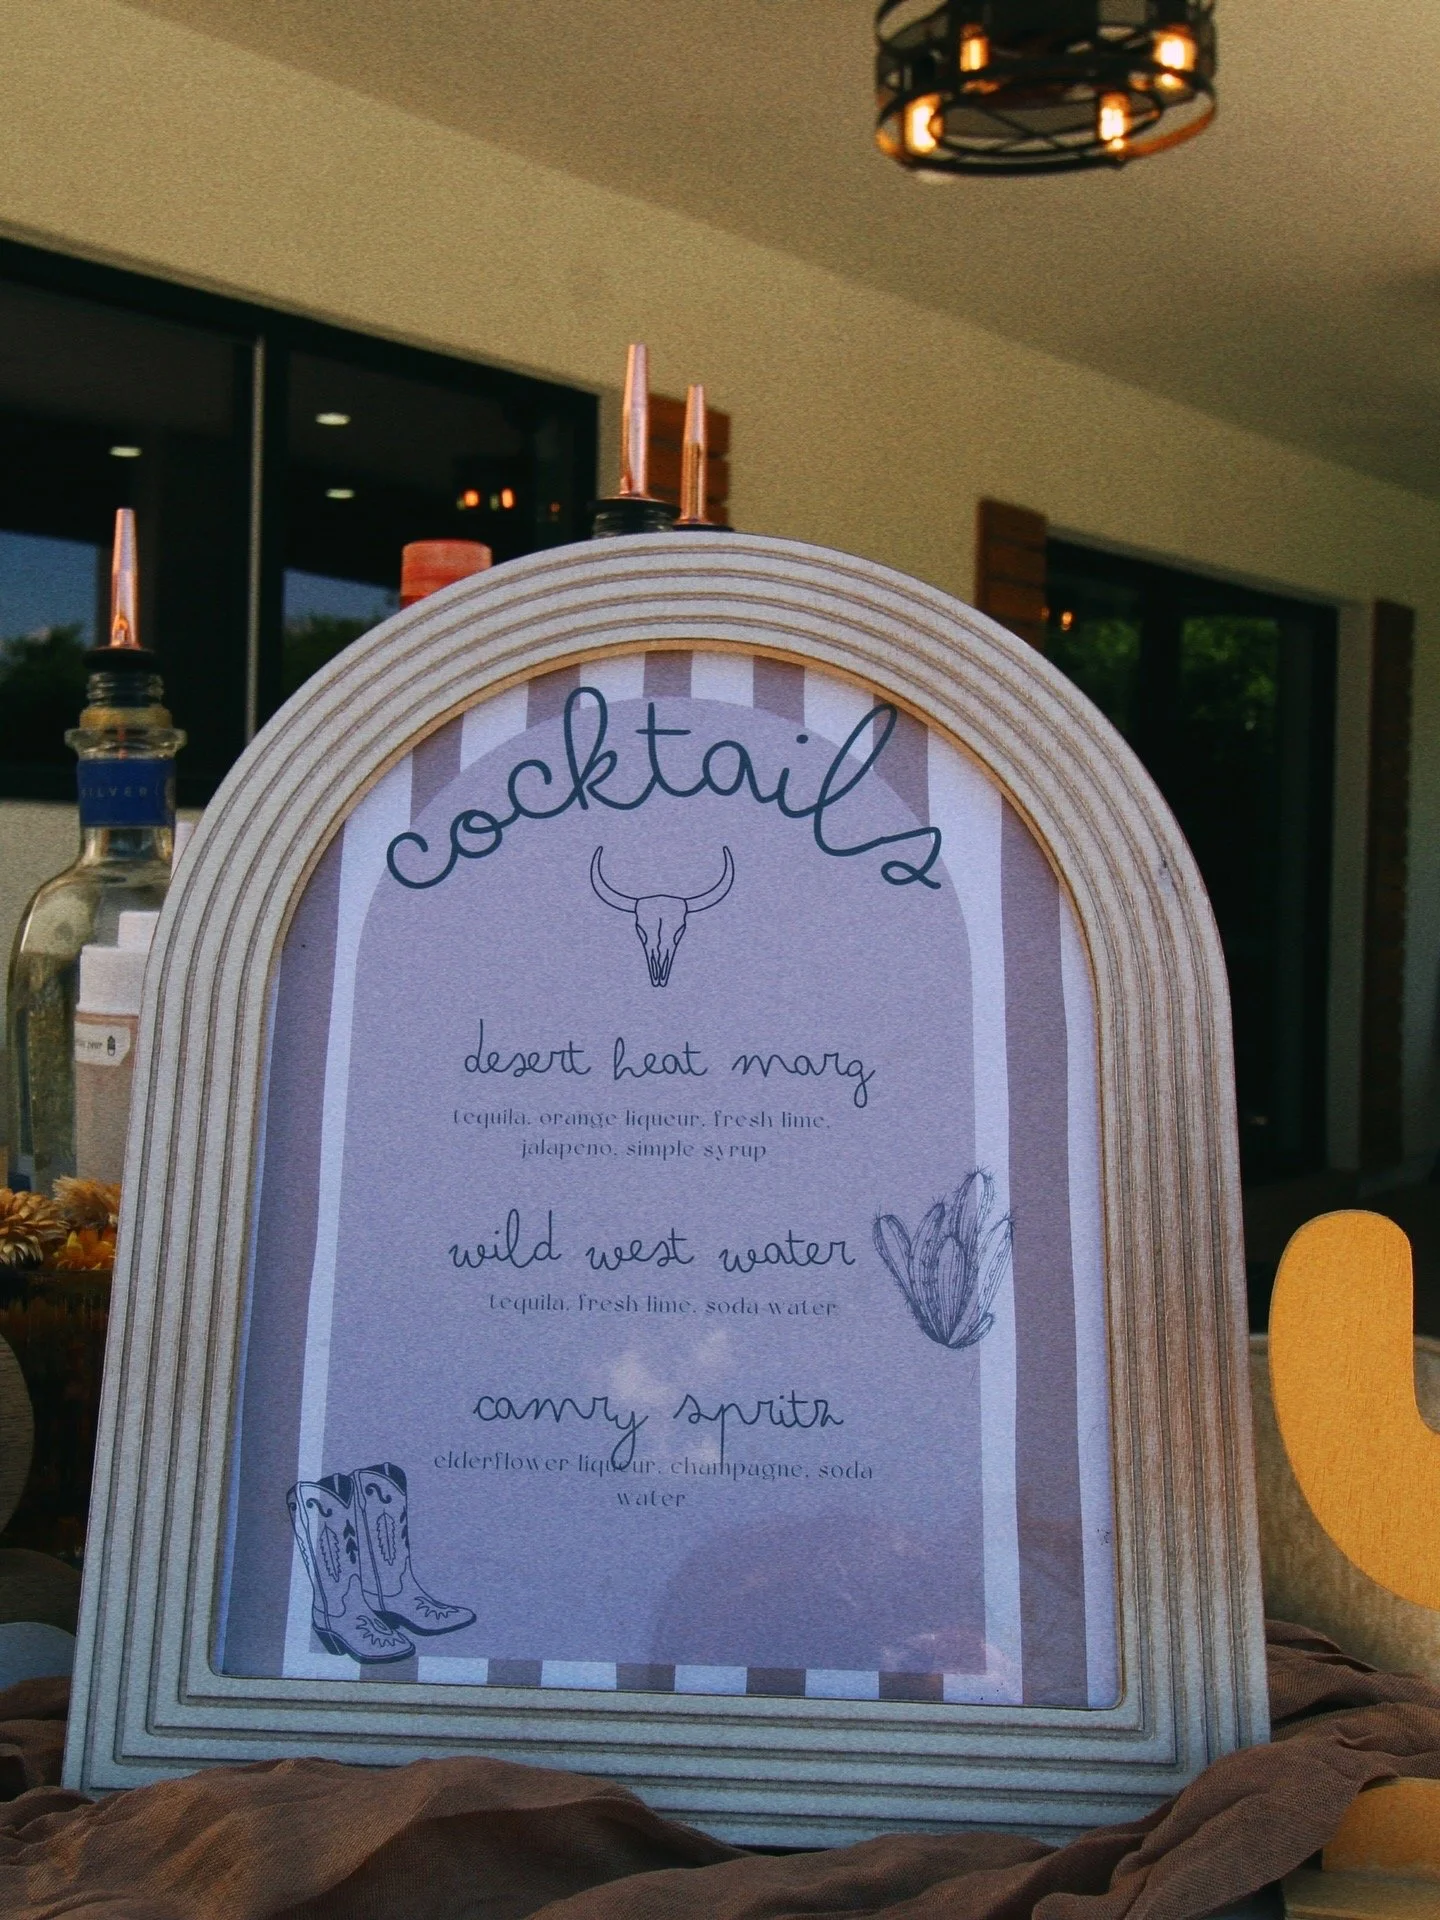 cocktails
desert heat marg
tequila, orange liqueur, fresh lime,
jalapeno, simple syrup
wild west water
tequila, fresh lime, soda water
camry spritz
elderflower liqueur, champagne, soda
water
SILVER